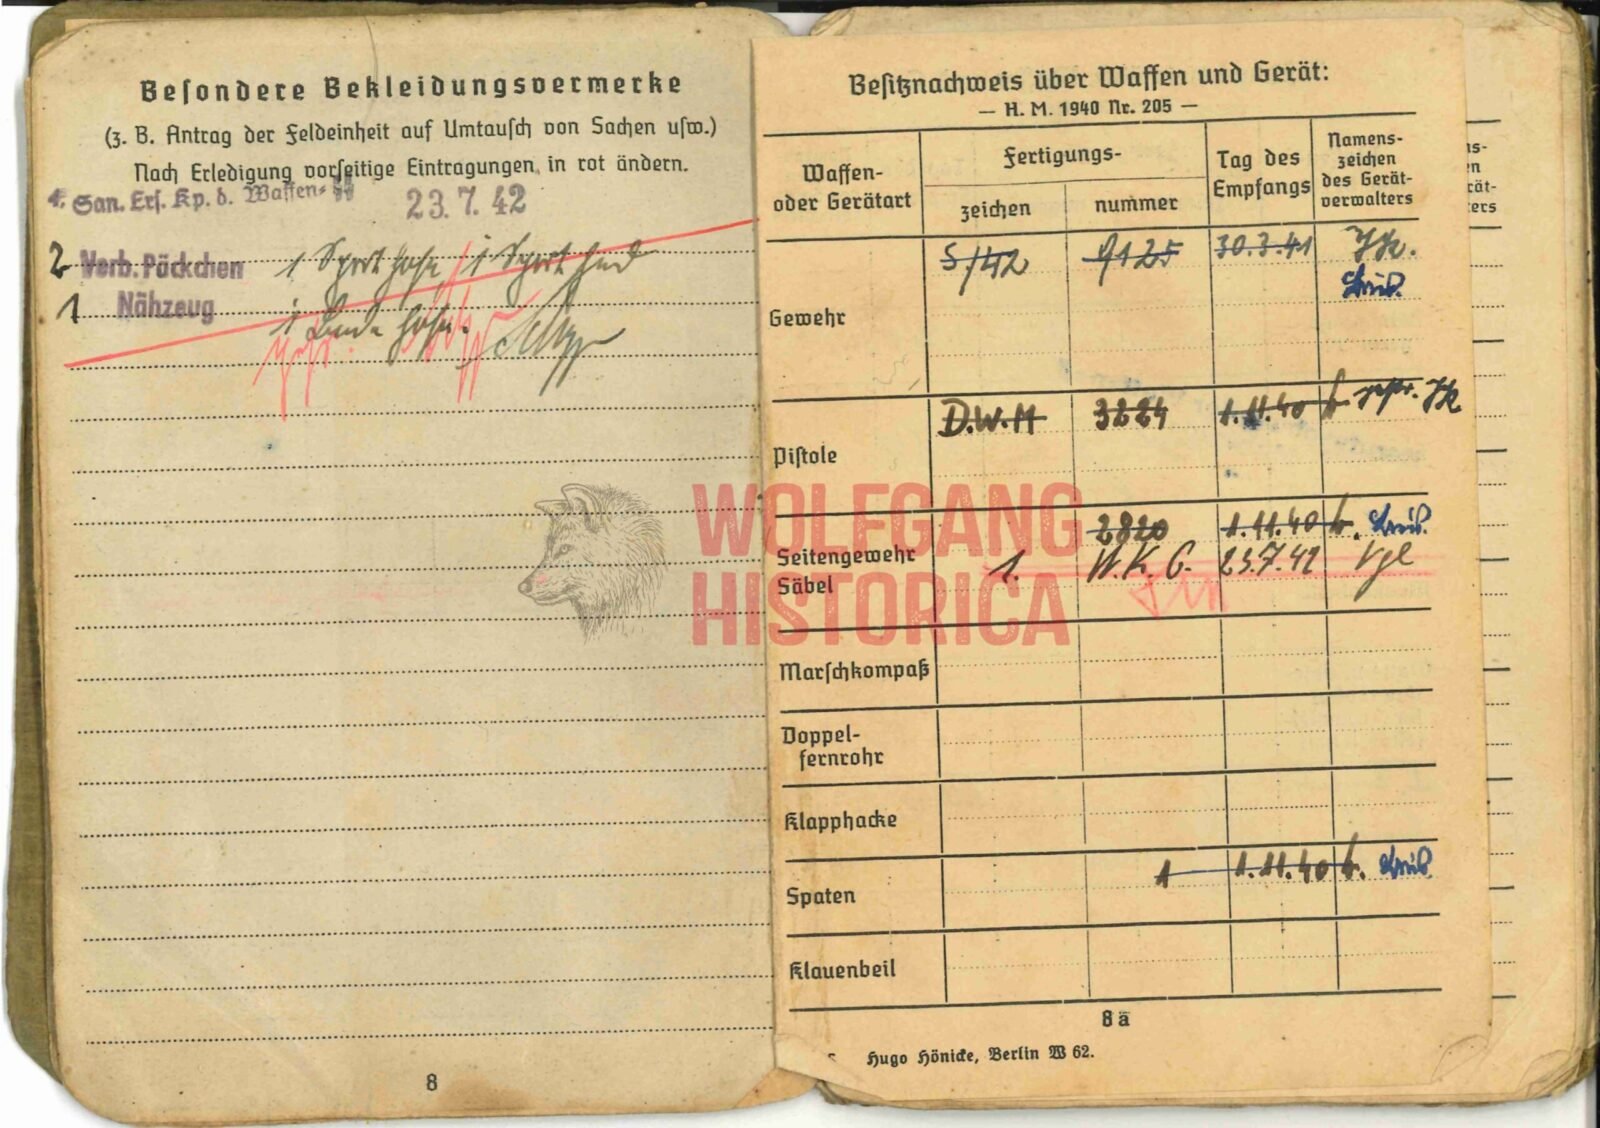 Besondere Bekleidungsvermerke
(z. B. Antrag der Feldeinheit auf Umtausch von Sachen usw.)
Nach Erledigung vorseitige Eintragungen in rot ändern.
San. Ers. Kp. d. Waffen-SS 23. 7. 42
2 Verb. Päckchen 1 Sporthose, 1 Sporthemd
1 Nähzeug 1 Badehose.
8
Besitznachweis über Waffen und Gerät:
— H. M. 1940 Nr. 205 —
Waffen- oder Gerätart
Fertigungs-
zeichen nummer
Tag des Empfangs
Namens-
zeichen
des Gerät-
verwalters
Gewehr S/42 9125 30.3.41
Pistole D.W.M 3224 1.11.40
2820 1.11.40
Seitengewehr
Säbel 1. W.K.C. 23.7.42
Marschkompaß
Doppel-
fernrohr
Klapphacke
Spaten 1 1.11.40
Klauenbeil
8 a
Hugo Hönicke, Berlin W 62.
WOLFGANG
HISTORICA